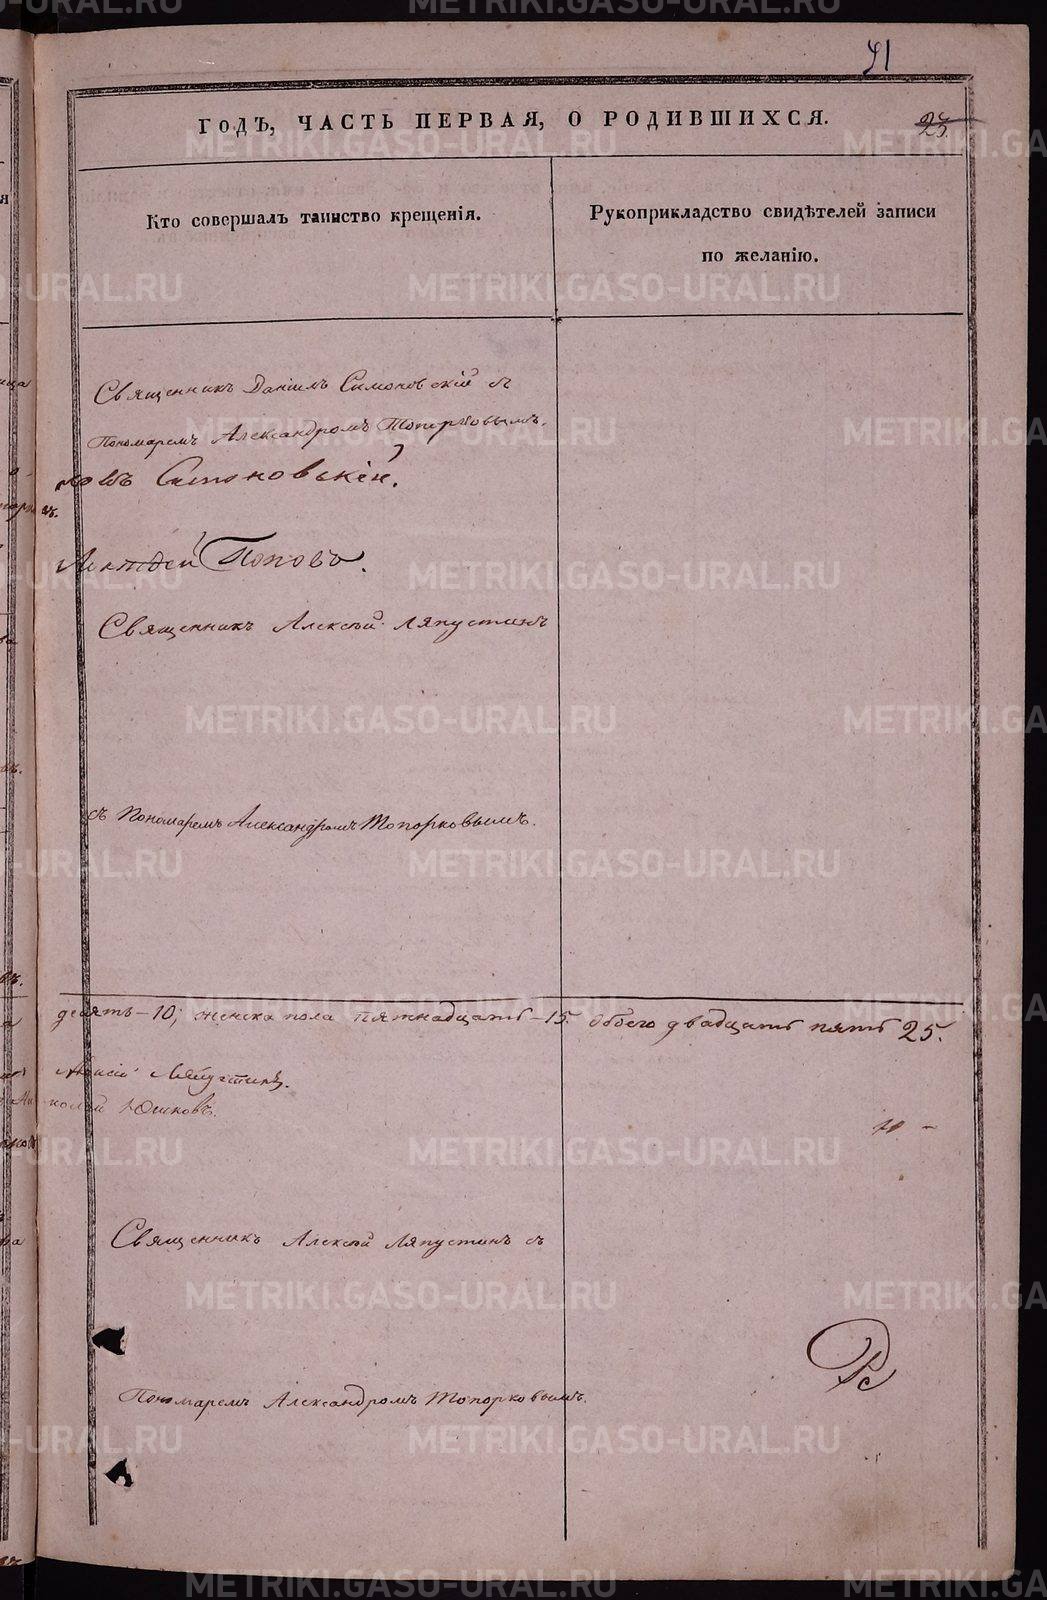 91
ГОДЪ, ЧАСТЬ ПЕРВАЯ, О РОДИВШИХСЯ.
25.
Кто совершалъ таинство крещенія.
Рукоприкладство свидѣтелей записи
по желанію.
Священникъ Даніилъ Симоновскій съ
Пономаремъ Александромъ Топорковымъ.
Симоновскій.
Поповъ.
Священникъ Алексѣй Ляпустинъ
съ Пономаремъ Александромъ Топорковымъ.
десять – 10; женска пола пятнадцать – 15. Обоего двадцать пять 25.
Алексій Ляпустинъ.
Юшковъ.
Священникъ Алексѣй Ляпустинъ съ
Пономаремъ Александромъ Топорковымъ.
METRIKI.GASO-URAL.RU